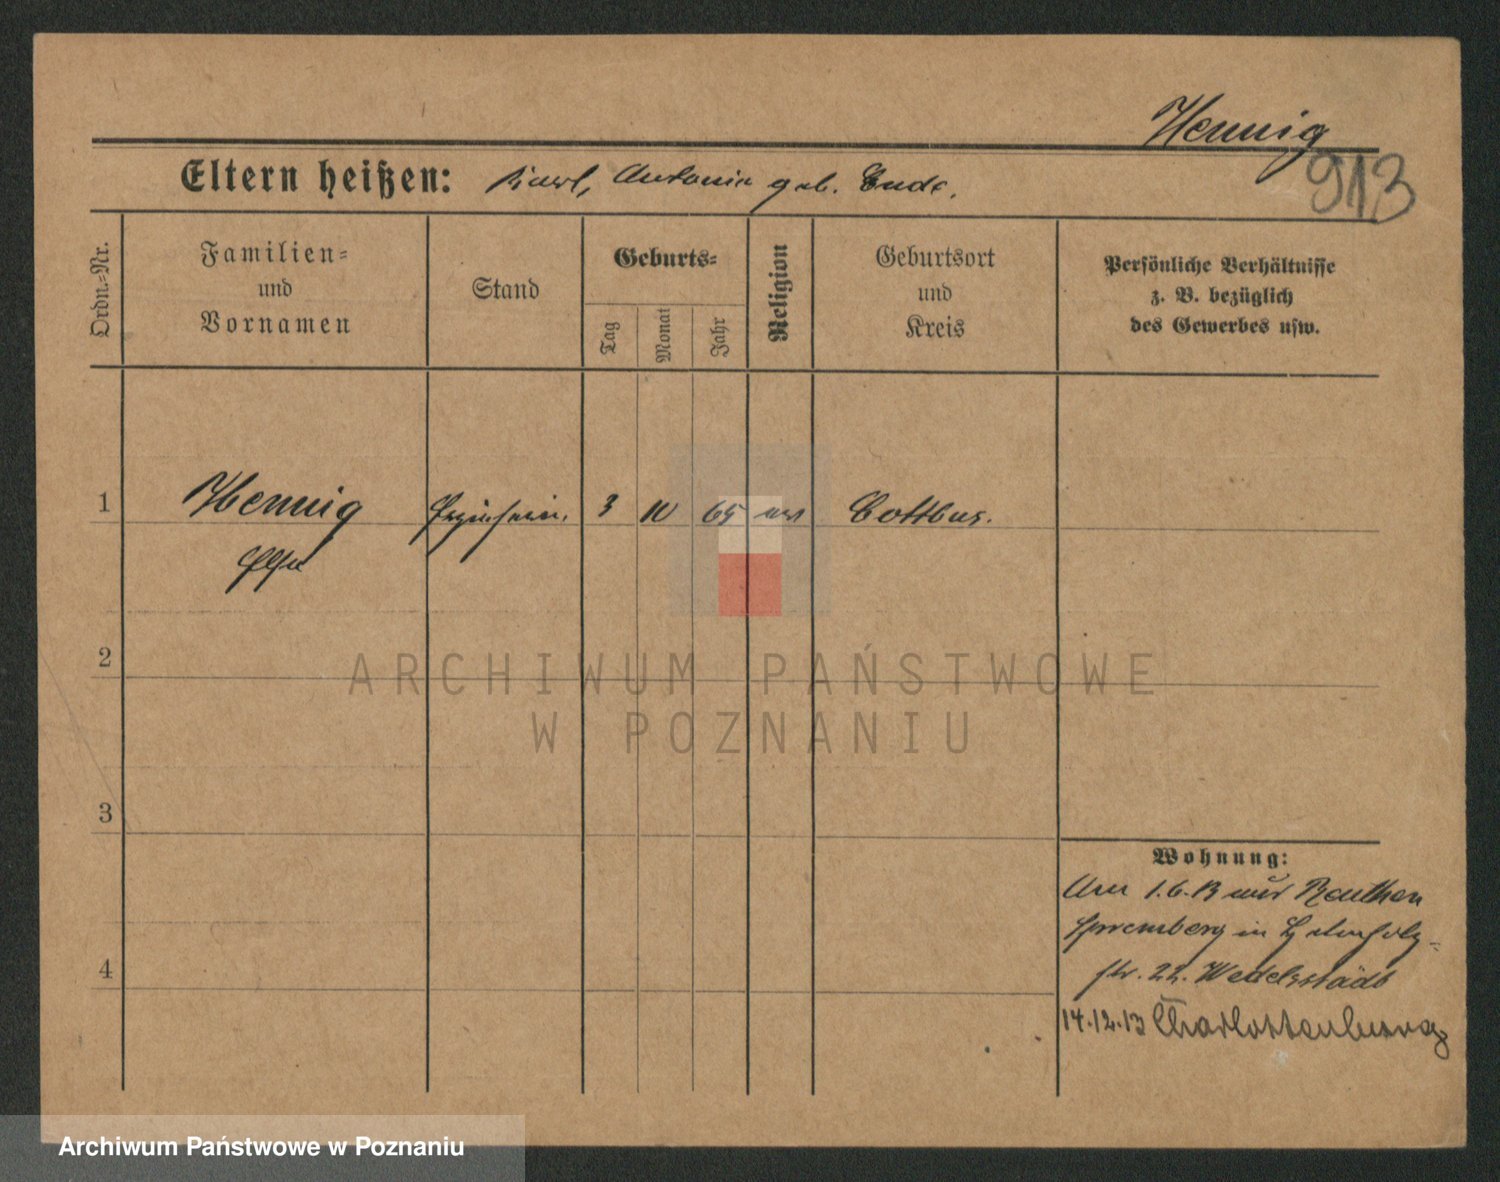 Hennig
913
Eltern heißen: Karl, Antonie geb. Ende.
Ordn.-Nr.
Familien- und Vornamen
Stand
Geburts-
Tag
Monat
Jahr
Religion
Geburtsort und Kreis
Persönliche Verhältnisse
z. B. bezüglich
des Gewerbes usw.
1 Hennig 3 10 65 Cottbus.
Else
2
ARCHIWUM PAŃSTWOWE
W POZNANIU
3
Wohnung:
Am 1.6.13
Spremberg in
4
str. 22.
14.12.13 Charlottenburg
Archiwum Państwowe w Poznaniu